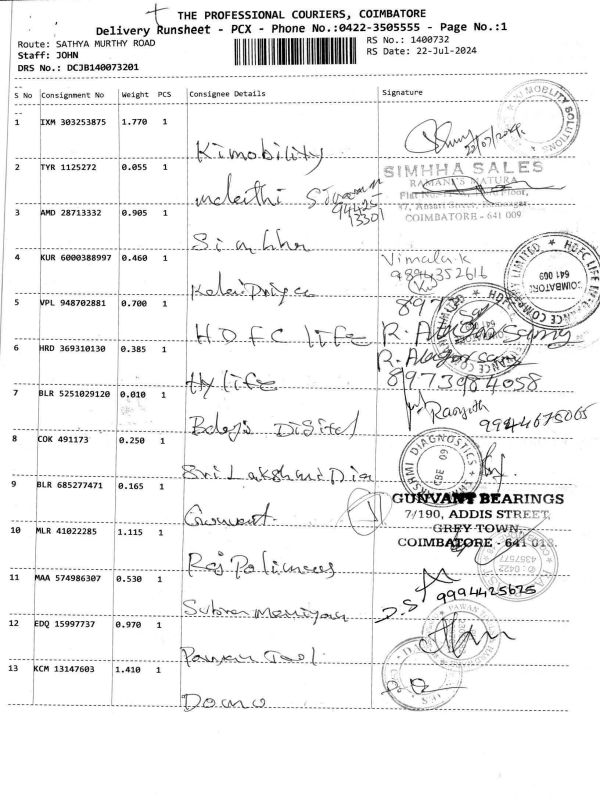 THE PROFESSIONAL COURIERS, COIMBATORE
Delivery Runsheet - PCX - Phone No.:0422-3505555 - Page No.:1
Route: SATHYA MURTHY ROAD
Staff: JOHN
DRS No.: DCJB140073201
RS No.: 1400732
RS Date: 22-Jul-2024
S No Consignment No Weight PCS Consignee Details Signature
1 IXM 303253875 1.770 1
Kimobility
22/07/2024
MOBLITY SOLUTIONS
2 TYR 1125272 0.055 1
94425
13301
SIMHHA SALES
RAMANI'S
COIMBATORE - 641 009
3 AMD 28713332 0.905 1
Simhha
4 KUR 6000388997 0.460 1
Kalaipriya
Vimala.k
9894352616
5 VPL 948702881 0.700 1
HDFC life
HDFC LIFE
COIMBATORE
641 009
6 HRD 369310130 0.385 1
Hy life
8973984058
7 BLR 5251029120 0.010 1
Balaji Digital
Ranjith
9944675065
8 COK 491173 0.250 1
Sri Lakshmi Dia
LAKSHMI DIAGNOSTICS
CBE 09
9 BLR 685277471 0.165 1
Gunvant
GUNVANT BEARINGS
7/190, ADDIS STREET,
GREY TOWN,
COIMBATORE - 641 018.
10 MLR 41022285 1.115 1
Raj Polimers
11 MAA 574986307 0.530 1
Subramaniyan
D.S
9994425625
12 EDQ 15997737 0.970 1
Pawan Tool
PAWAN
13 KCM 13147603 1.410 1